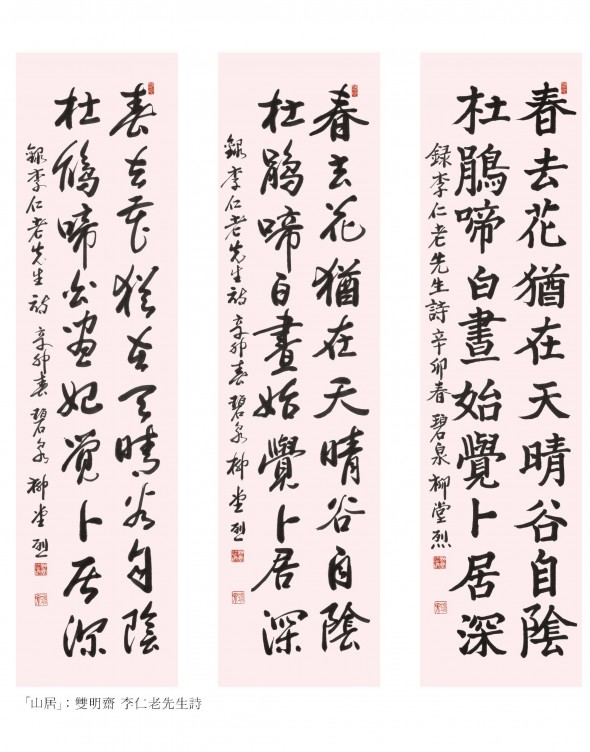 春去花猶在天晴谷自陰
杜鵑啼白晝始覺卜居深
録李仁老先生詩 辛卯春 碧泉 柳堂烈
春去花猶在天晴谷自陰
杜鵑啼白晝始覺卜居深
録李仁老先生詩 辛卯春 碧泉 柳堂烈
春去花猶在天晴谷自陰
杜鵑啼白晝始覺卜居深
録李仁老先生詩 辛卯春 碧泉 柳堂烈
「山居」: 雙明齋 李仁老先生詩